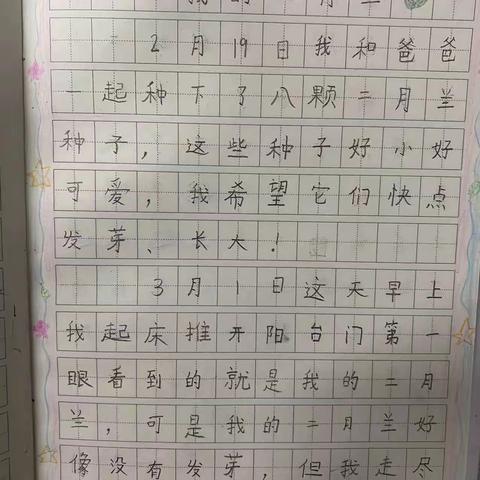 我的二月兰
2月19日我和爸爸
一起种下了八颗二月兰
种子，这些种子好小好
可爱，我希望它们快点
发芽、长大！
3月1日这天早上
我起床推开阳台门第一
眼看到的就是我的二月
兰，可是我的二月兰好
像没有发芽，但我走尽